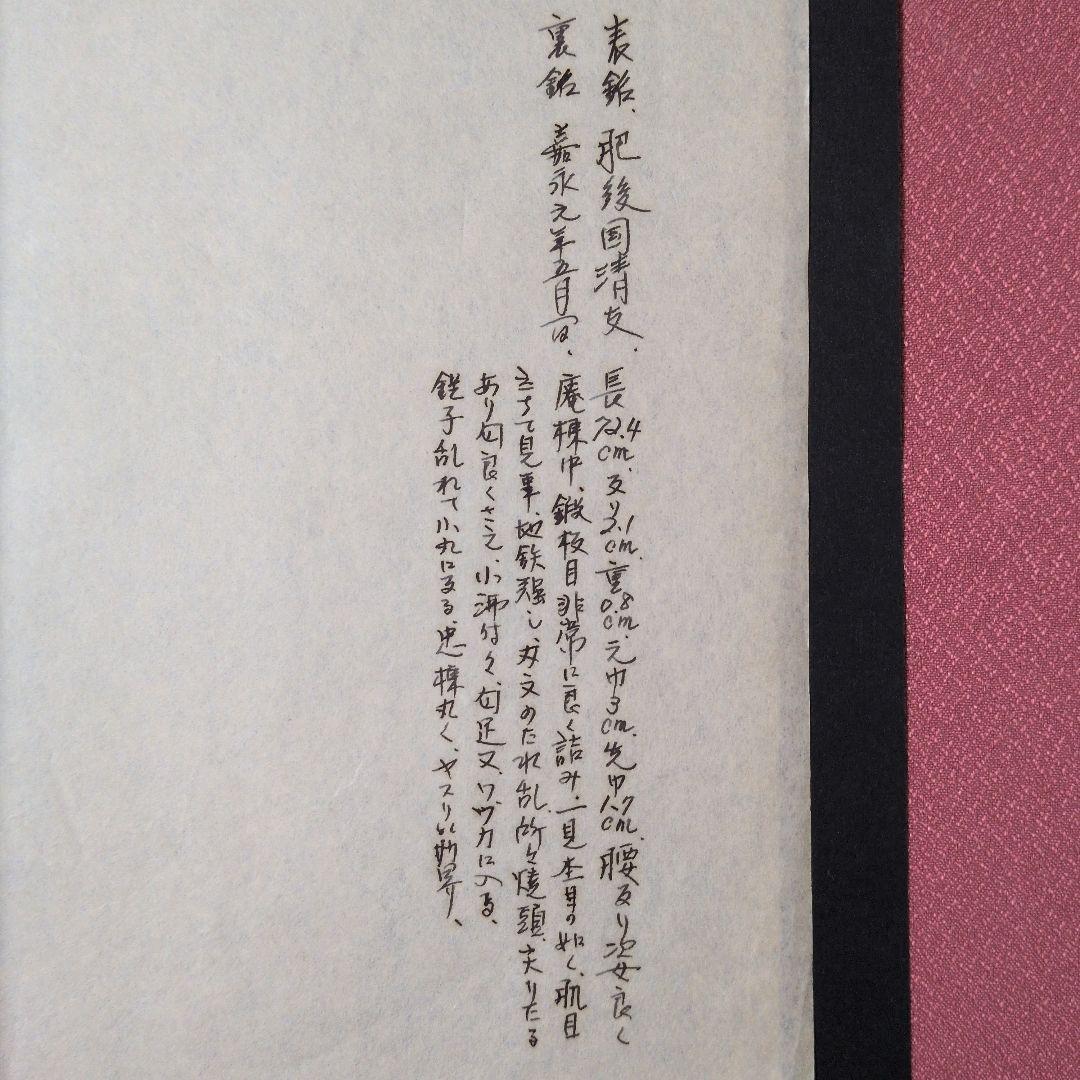 表銘、肥後国清友、長72.4cm、反り2.1cm、重0.8cm、元巾3cm、先巾1.7cm、腰反り姿良く
裏銘 嘉永元年五月 、庵棟中、鍛板目非常に良く詰み、一見杢目の如く、肌目
立ちて見事、地鉄強し、刃文のたれ乱、所々焼頭、尖りたる
あり匂良くさえ、小沸付く、匂足又、ワヅカに入る、
鋩子乱れて小丸に反る、 棟丸く、ヤスリ 、